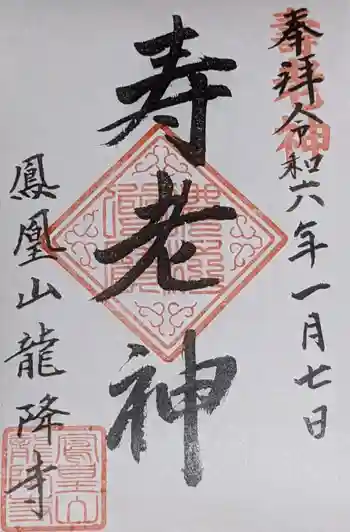 奉拝 令和六年一月七日
寿老神
鳳凰山 龍降寺